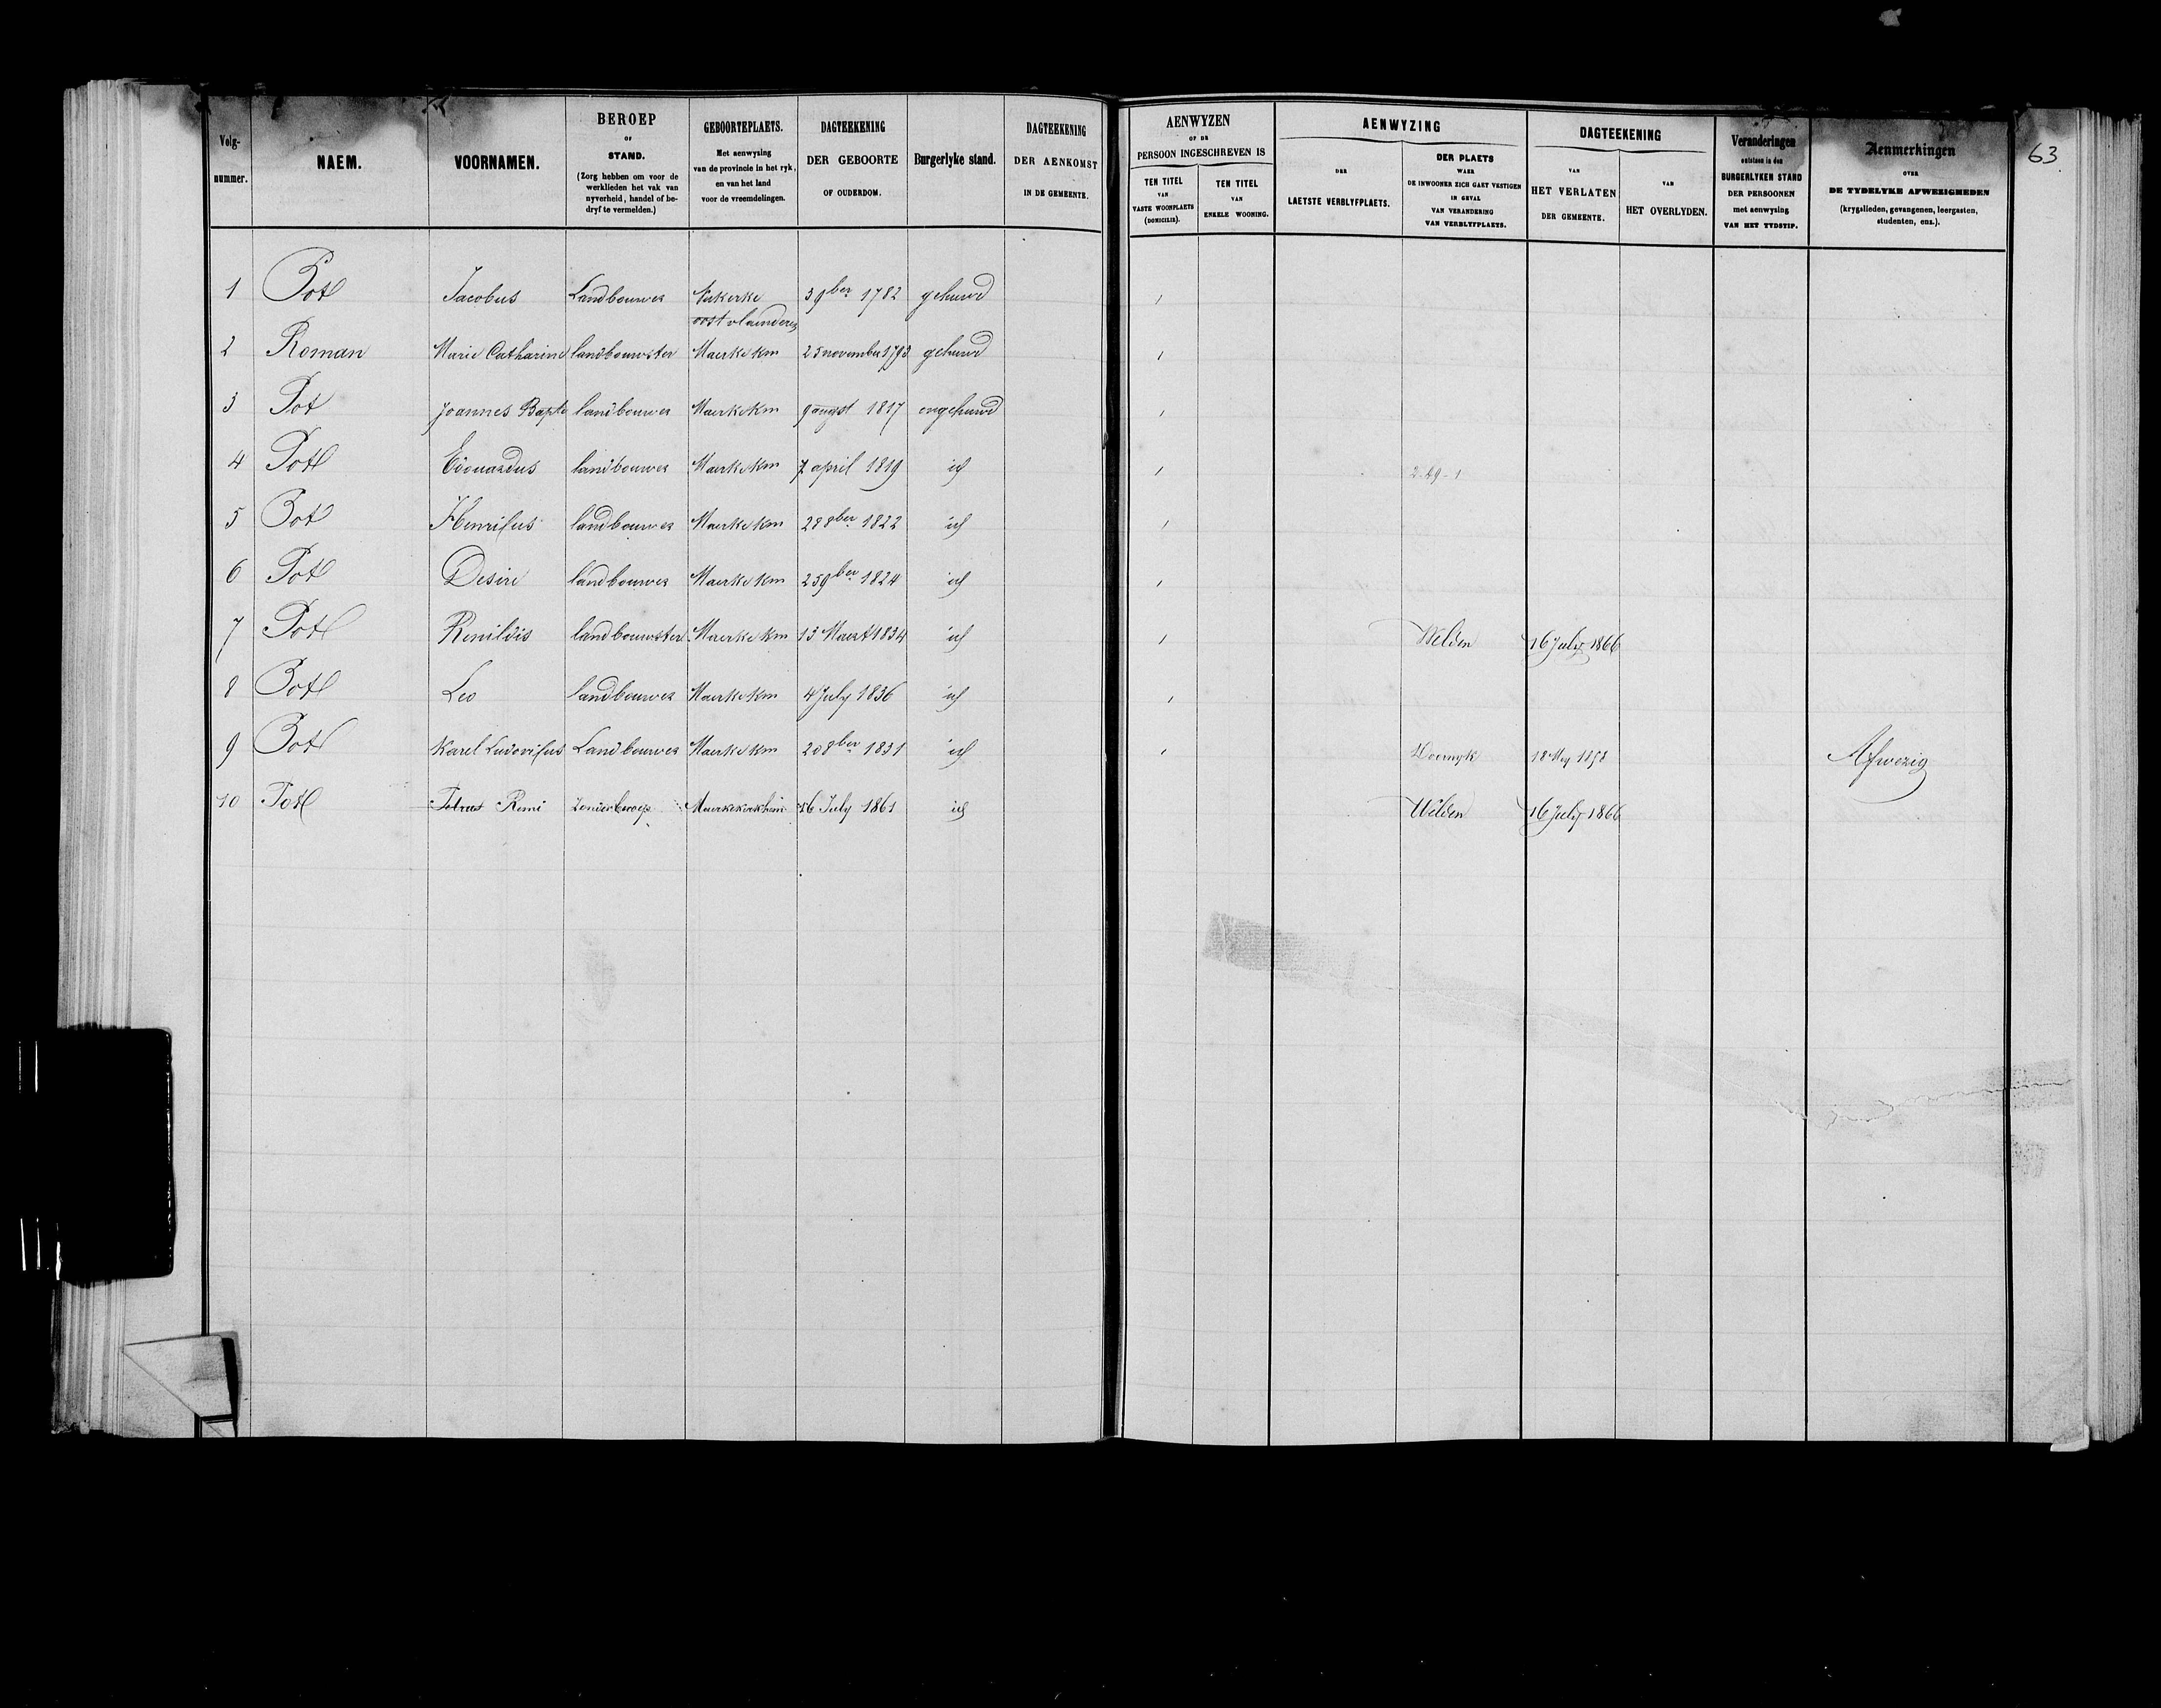 63
Volg-nummer. NAEM. VOORNAMEN. BEROEP OF STAND. (Zorg hebben om voor de werklieden het vak van nyverheid, handel of bedryf te vermelden.) GEBOORTEPLAETS. Met aenwysing van de provincie in het ryk, en van het land voor de vreemdelingen. DAGTEEKENING DER GEBOORTE OF OUDERDOM. Burgerlyke stand. DAGTEEKENING DER AENKOMST IN DE GEMEENTE.
AENWYZEN OF DE PERSOON INGESCHREVEN IS TEN TITEL VAN VASTE WOONPLAETS (DOMICILIE). TEN TITEL VAN ENKELE WOONING. AENWYZING DER LAETSTE VERBLYFPLAETS. DER PLAETS WAER DE INWOONER ZICH GAET VESTIGEN IN GEVAL VAN VERANDERING VAN VERBLYFPLAETS. DAGTEEKENING VAN HET VERLATEN DER GEMEENTE. VAN HET OVERLYDEN. Veranderingen ontstaen in den BURGERLYKEN STAND DER PERSOONEN met aenwysing VAN HET TYDSTIP. Aenmerkingen OVER DE TYDELYKE AFWEZIGHEDEN (krygslieden, gevangenen, leergasten, studenten, enz.).
1 Pot Jacobus Landbouwer Nukerke oost vlaanderen 3 9ber 1782 gehuwd
2 Roman Marie Catharine landbouwster Maerke km 25 november 1793 gehuwd
3 Pot Joannes Bapte landbouwer Maerke km 9 augst 1817 ongehuwd
4 Pot Edouardus landbouwer Maerke km 7 april 1819 id 2-49-1
5 Pot Henricus landbouwer Maerke km 28 8ber 1822 id
6 Pot Desiré landbouwer Maerke km 25 9ber 1824 id
7 Pot Renildis landbouwster Maerke km 13 Maert 1834 id Welden 16 July 1866
8 Pot Leo landbouwer Maerke km 4 July 1836 id
9 Pot Karel Ludovicus Landbouwer Maerke km 20 8ber 1831 id Doornyk 18 Mey 1858 Afwezig
10 Pot Petrus Remi Zonder beroep Maerkekerkhem 16 July 1861 id Welden 16 July 1866